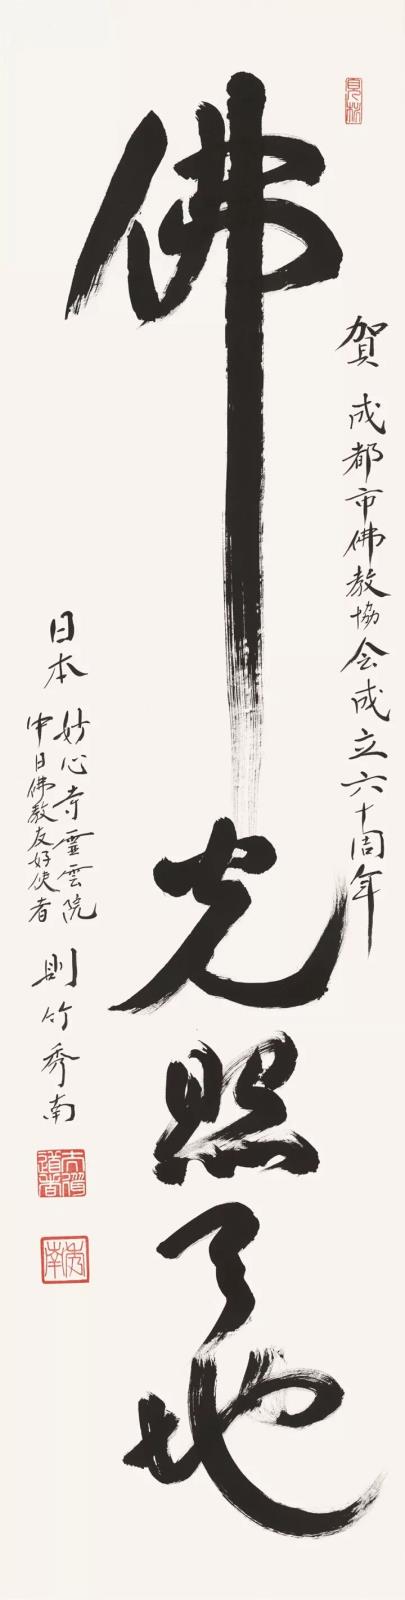 賀 成都市佛教協会成立六十周年
佛光照天地
日本 妙心寺霊雲院
中日佛教友好使者
則竹秀南
秀南